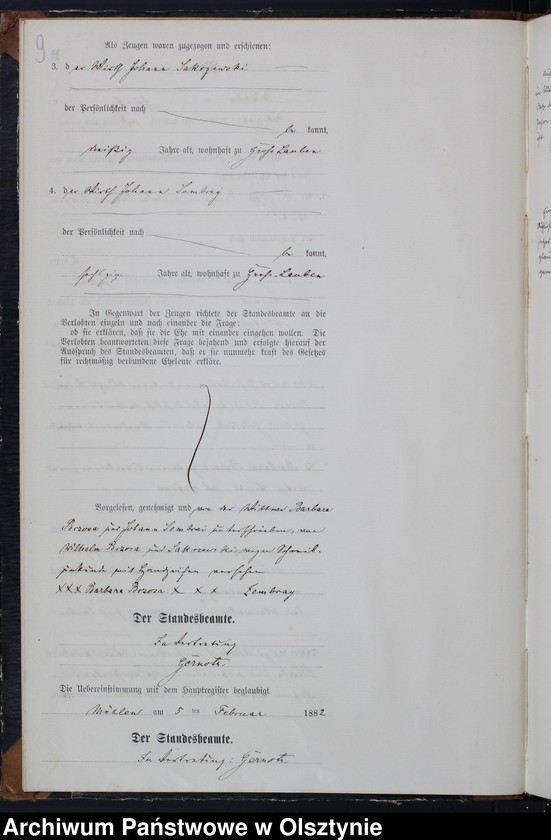 9.
Als Zeugen waren zugezogen und erschienen:
3. der Wirth Johann Sakozewski
der Persönlichkeit nach
be kannt,
dreißig Jahre alt, wohnhaft zu Groß Lauben
4. der Wirth Johann Lembray
der Persönlichkeit nach
be kannt,
sechszig Jahre alt, wohnhaft zu Groß-Lauben
In Gegenwart der Zeugen richtete der Standesbeamte an die
Verlobten einzeln und nach einander die Frage:
ob sie erklären, daß sie die Ehe mit einander eingehen wollen. Die
Verlobten beantworteten diese Frage bejahend und erfolgte hierauf der
Ausspruch des Standesbeamten, daß er sie nunmehr kraft des Gesetzes
für rechtmäßig verbundene Eheleute erkläre.
Vorgelesen, genehmigt und von der Wittwe Barbara
Brzosa und Johann Lembrai unterschrieben, von
Wilhelm Brzosa und Sakozewski wegen Schreib-
unkunde mit Handzeichen versehen
XXX Barbara Brzosa X X X Lembray
Der Standesbeamte.
In Vertretung
Gernoth.
Die Uebereinstimmung mit dem Hauptregister beglaubigt.
Mühlen am 5 ten Februar 1882
Der Standesbeamte.
In Vertretung: Gernoth.
Archiwum Państwowe w Olsztynie